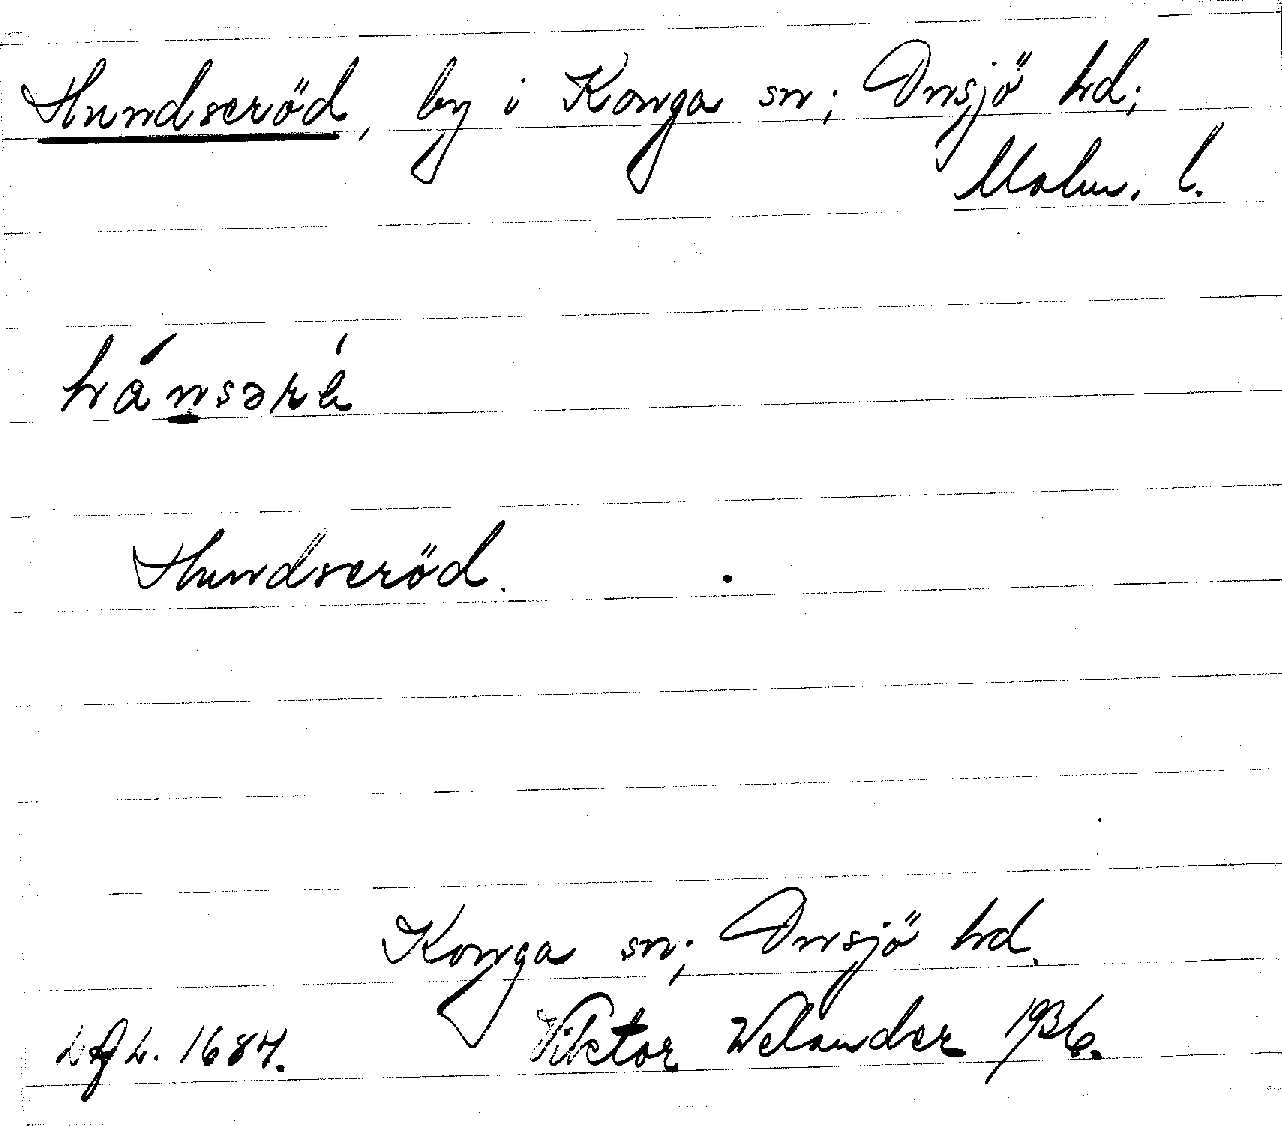 Hundseröd, by i Konga sn; Onsjö hd;
Malm. l.
Hundseröd.
Konga sn; Onsjö hd.
Viktor Welander 1936.